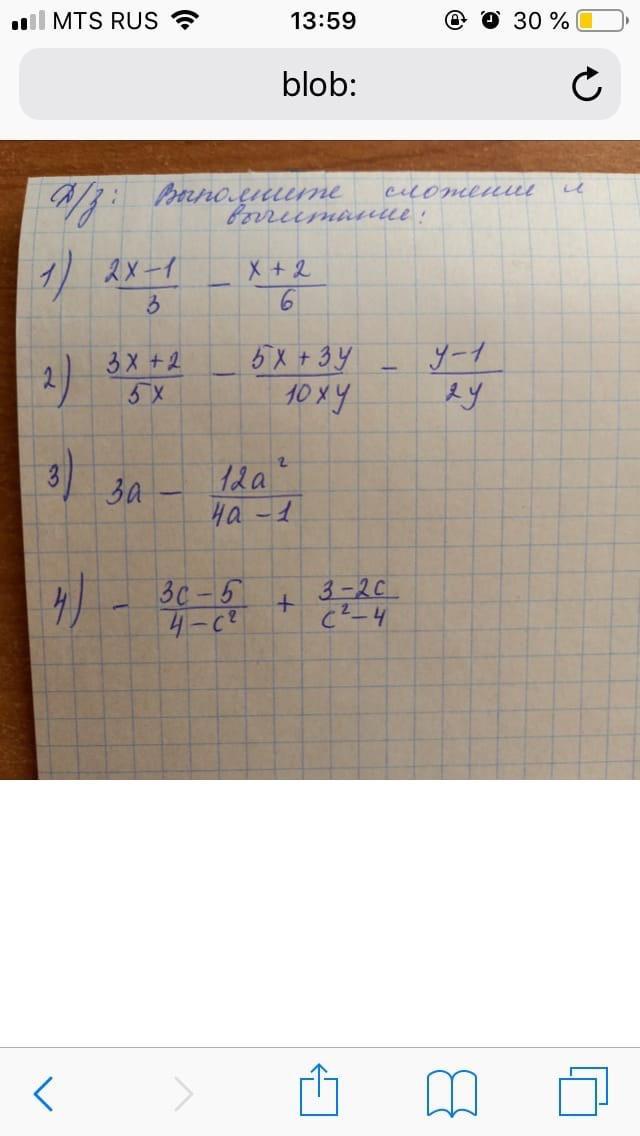 MTS RUS 13:59 30 %
blob:
Д/з: Выполните сложение и
вычитание:
1) (2x-1)/3 - (x+2)/6
2) (3x+2)/5x - (5x+3y)/10xy - (y-1)/2y
3) 3a - 12a²/(4a-1)
4) - (3c-5)/(4-c²) + (3-2c)/(c²-4)